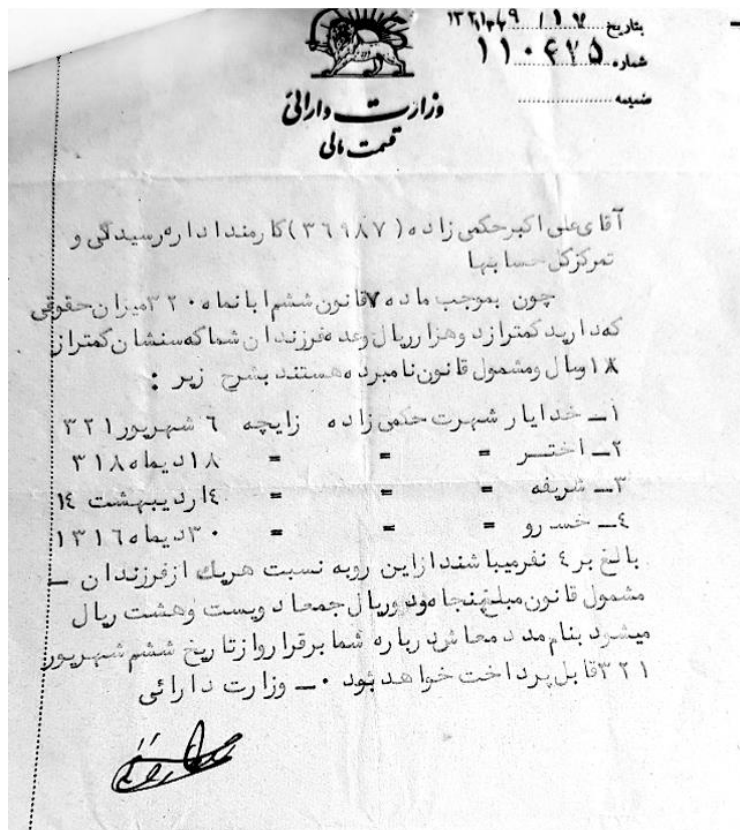 بتاریخ ۱۷ / ۹
شماره ۱۱۰۶۷۵
ضمیمه
وزارت دارائی
قسمت مالی
آقای علی اکبر حکمی زاده (۳٦۹۸۷) کارمند اداره رسیدگی و
تمرکز کل حسابها
چون بموجب ماده ۷ قانون ششم ابانماه ۳۲۰ میزان حقوقی
که دارید کمتر از دو هزار ریال و عده فرزندان شما که سنشان کمتر از
۱۸ سال و مشمول قانون نامبرده هستند بشرح زیر :
۱ــ خدایار شهرت حکمی زاده زایچه ٦ شهریور ۳۲۱
۲ــ اختر = = = ۱۸ دیماه ۳۱۸
۳ــ شریفه = = = ۱٤ اردیبهشت ۱٤
٤ــ خسرو = = = ۳۰ دیماه ۱۳۱٦
بالغ بر ٤ نفر میباشند از این رو به نسبت هریك از فرزندان ــ
مشمول قانون مبلغ پنجاه و دو ریال جمعا دویست و هشت ریال
میشود بنام مدد معاش درباره شما برقرار و از تاریخ ششم شهریور
۳۲۱ قابل پرداخت خواهد بود ۰ــ وزارت دارائی